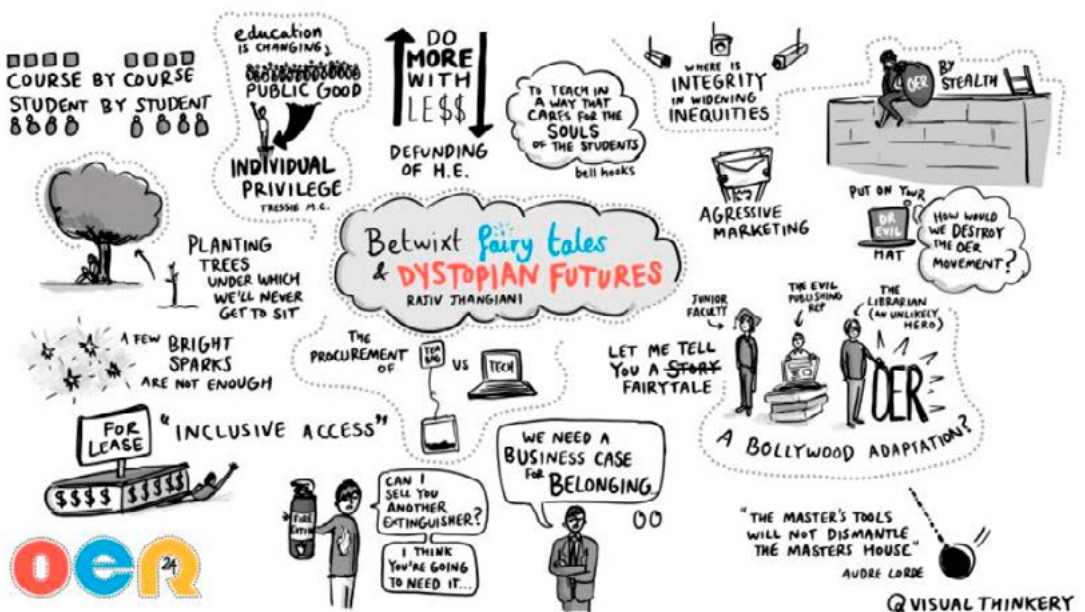 COURSE BY COURSE
STUDENT BY STUDENT
education
IS CHANGING
PUBLIC GOOD
INDIVIDUAL
PRIVILEGE
TRESSIE M.C.
DO
MORE
WITH
LE$$
DEFUNDING
OF H.E.
TO TEACH IN
A WAY THAT
CARES FOR THE
SOULS
OF THE STUDENTS
bell hooks
WHERE IS
INTEGRITY
IN WIDENING
INEQUITIES
OER
BY
STEALTH
AGRESSIVE
MARKETING
PUT ON YOUR
DR
EVIL
HAT
HOW WOULD
WE DESTROY
THE OER
MOVEMENT?
PLANTING
TREES
UNDER WHICH
WE'LL NEVER
GET TO SIT
Betwixt fairy tales
& DYSTOPIAN FUTURES
RAJIV JHANGIANI
A FEW BRIGHT
SPARKS
ARE NOT ENOUGH
THE
PROCUREMENT
OF
TEA
BAG
VS
TECH
JUNIOR
FACULTY
THE EVIL
PUBLISHING
REP
THE
LIBRARIAN
(AN UNLIKELY
HERO)
LET ME TELL
YOU A STORY
FAIRYTALE
OER
A BOLLYWOOD ADAPTATION?
FOR
LEASE
"INCLUSIVE ACCESS"
$$$$ $$$$$
FIRE
EXTIN
CAN I
SELL YOU
ANOTHER
EXTINGUISHER?
I THINK
YOU'RE GOING
TO NEED IT...
WE NEED A
BUSINESS CASE
FOR BELONGING...
"THE MASTER'S TOOLS
WILL NOT DISMANTLE
THE MASTERS HOUSE"
AUDRE LORDE
OER
24
@VISUAL THINKERY